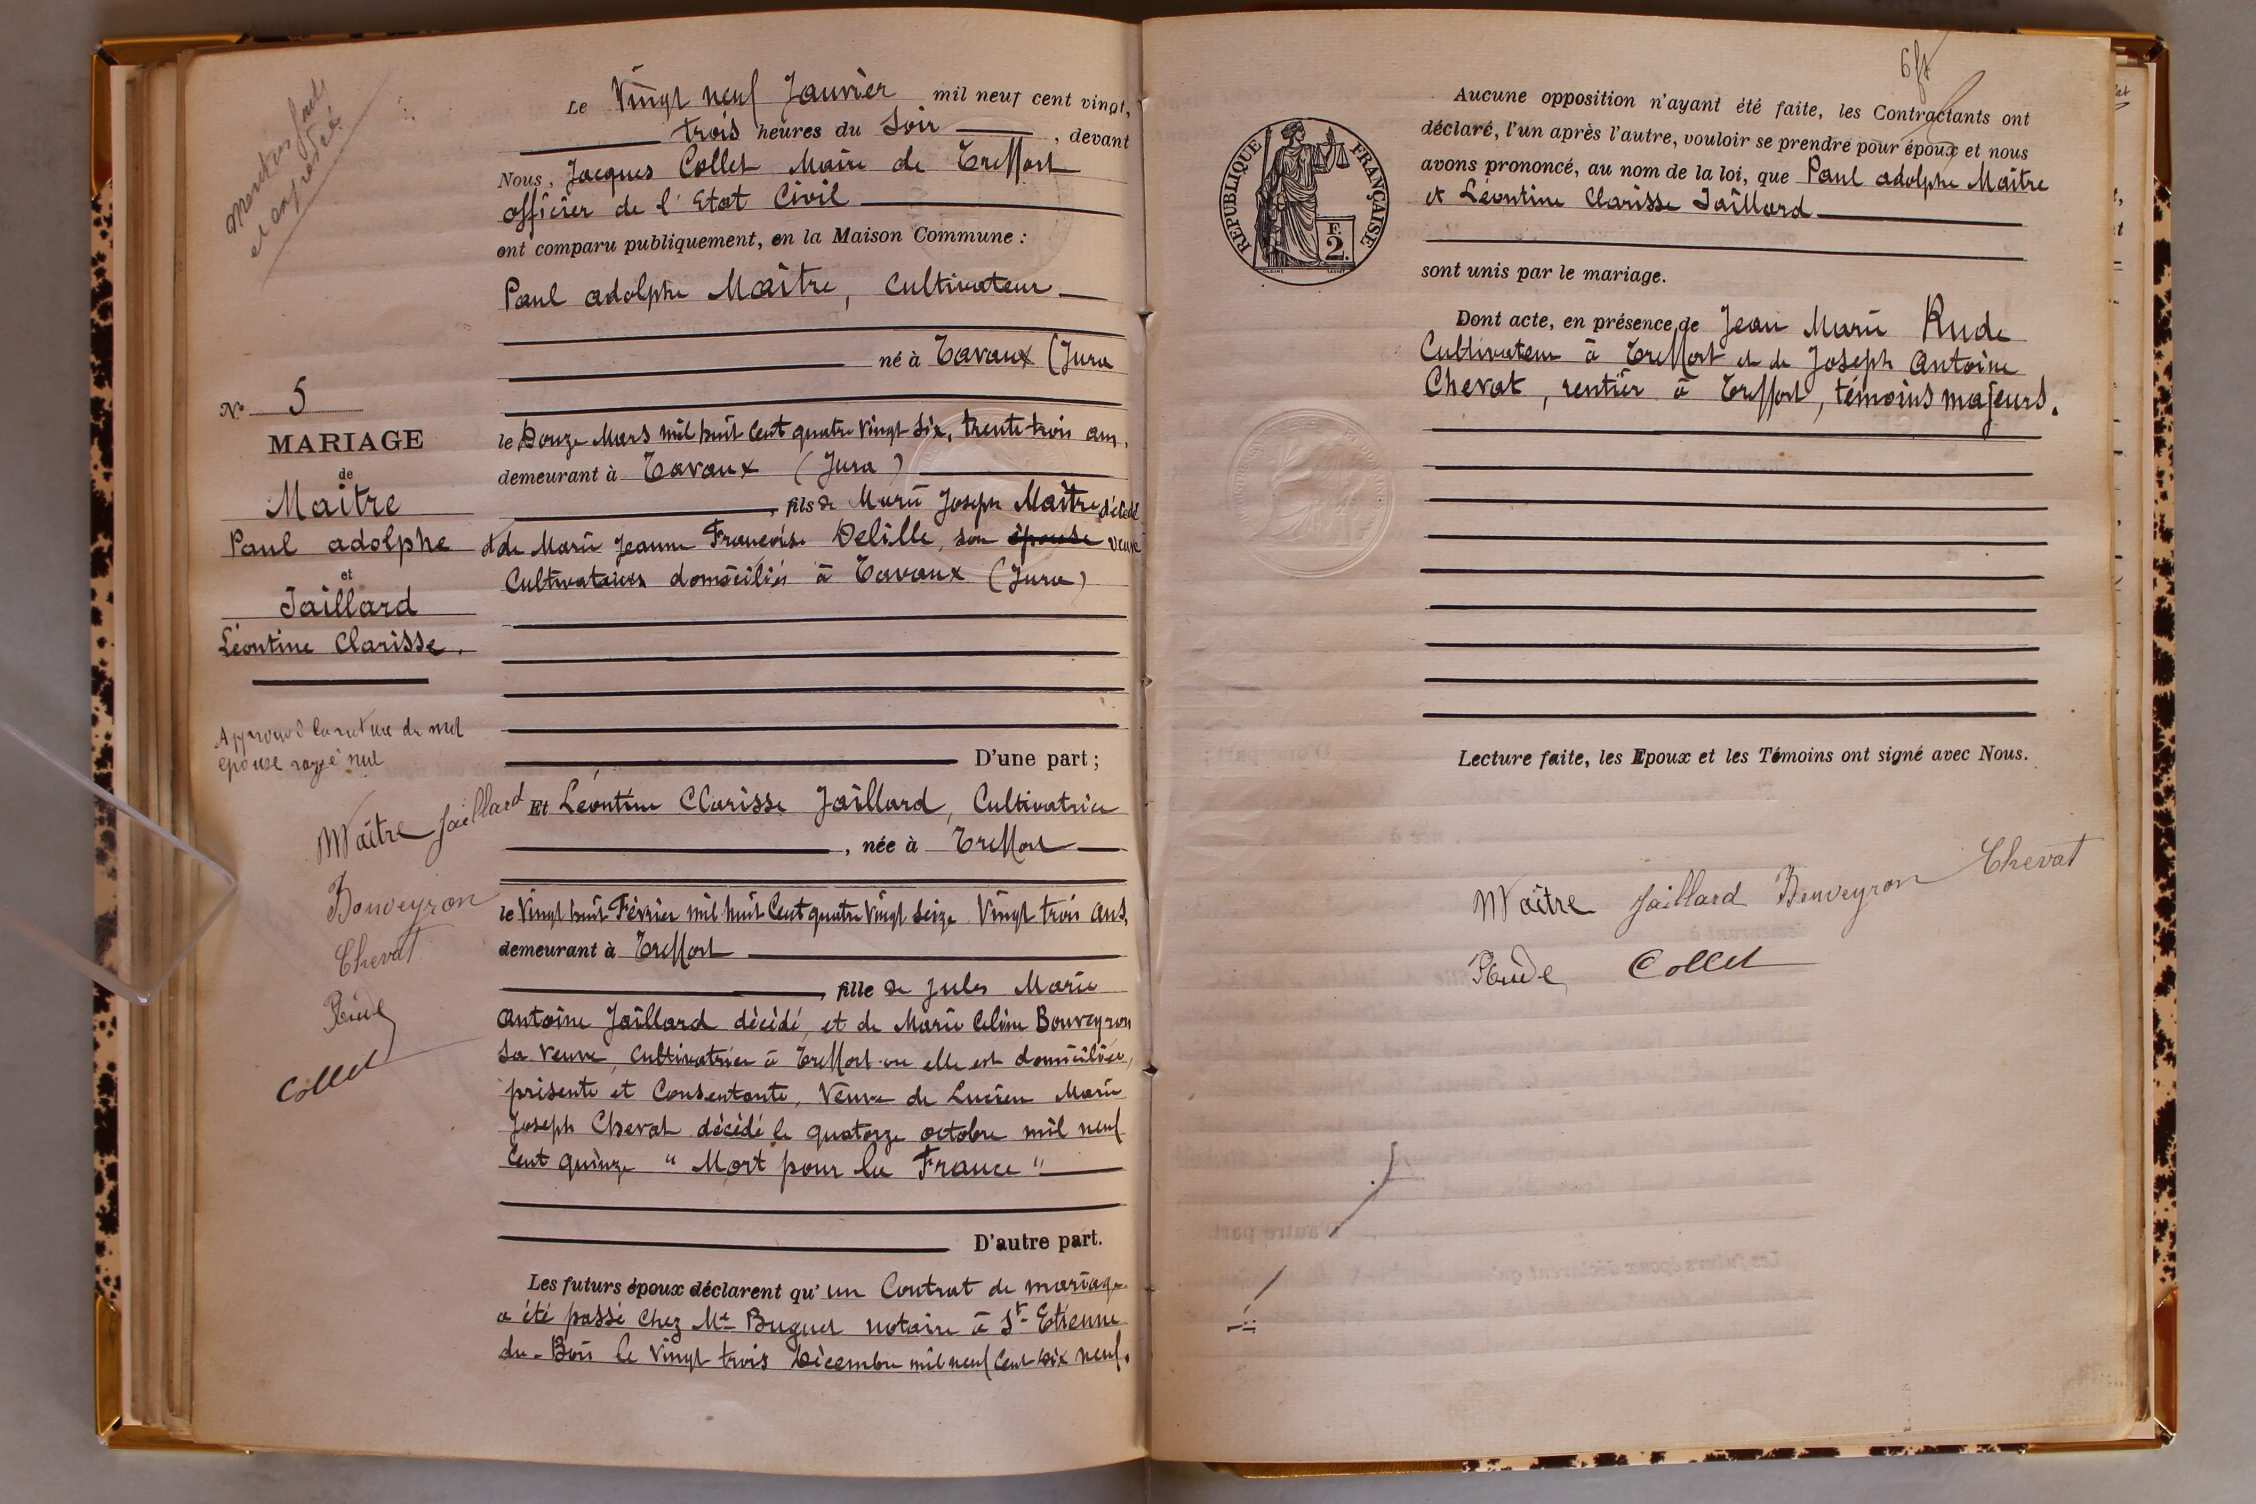 Mentions faites
et enfrosté
Le Vingt neuf Janvier mil neuf cent vingt,
trois heures du Soir, devant
Nous, Jacques Collet Maire de Treffort
officier de l'Etat Civil
ont comparu publiquement, en la Maison Commune :
Paul adolphe Maître, Cultivateur
né à Tavaux (Jura
le Douze Mars mil huit Cent quatre Vingt Six, trente trois ans,
demeurant à Tavaux (Jura)
, fils de Marie Joseph Maître décédé
et de Marie Jeanne Françoise Delille, son épouse veuve
Cultivateurs domiciliés à Tavaux (Jura)
D'une part ;
Et Léontine Clarisse Jaillard, Cultivatrice
, née à Treffort
le Vingt huit Février mil huit Cent quatre Vingt Seize Vingt trois ans,
demeurant à Treffort
, fille de Jules Marie
Antoine Jaillard décédé, et de Marie Celine Bouveyron
sa Veuve, Cultivatrice à Treffort où elle est domiciliée,
présente et Consentante, Veuve de Lucien Marie
Joseph Chevat décédé le quatorze octobre mil neuf
Cent quinze "Mort pour la France"
D'autre part.
Les futurs époux déclarent qu'un Contrat de mariage
a été passé Chez Me Buguet notaire à St Etienne
du-Bois le Vingt trois Décembre mil neuf Cent Dix neuf.
No 5
MARIAGE
de
Maître
Paul adolphe
et
Jaillard
Léontine Clarisse.
Approuvé la rature du mot
épouse rayé nul
Maître Jaillard
Bouveyron
Chevat
Rude
Collet
6 ft
RÉPUBLIQUE FRANÇAISE
F.
2.
Aucune opposition n'ayant été faite, les Contractants ont
déclaré, l'un après l'autre, vouloir se prendre pour époux et nous
avons prononcé, au nom de la loi, que Paul adolphe Maître
et Léontine Clarisse Jaillard
sont unis par le mariage.
Dont acte, en présence de Jean Marie Rude
Cultivateur à Treffort et de Joseph Antoine
Chevat, rentier à Treffort, témoins majeurs.
Lecture faite, les Epoux et les Témoins ont signé avec Nous.
Maître Jaillard Bouveyron Chevat
Rude Collet